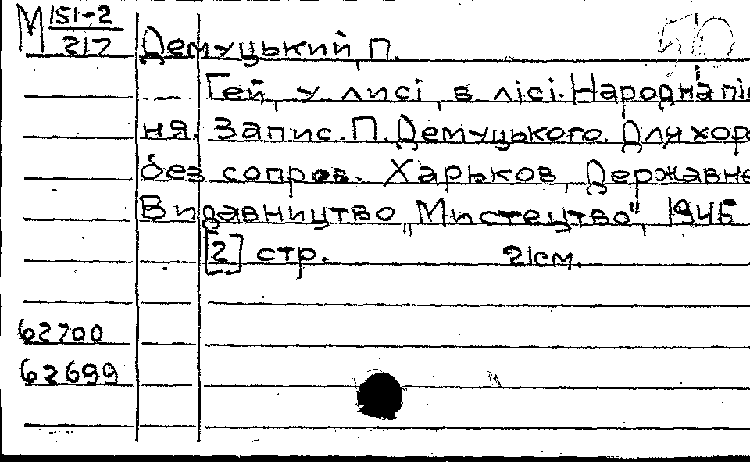 М 151-2
217
Демуцький, П.
Гей, у лисі, в лісі. Народна пі
ня. Запис. П. Демуцького. Для хор
без сопров. Харьков, Державне
Видавництво „Мистецтво", 1946
[2] стр. 21см.
62700
62699